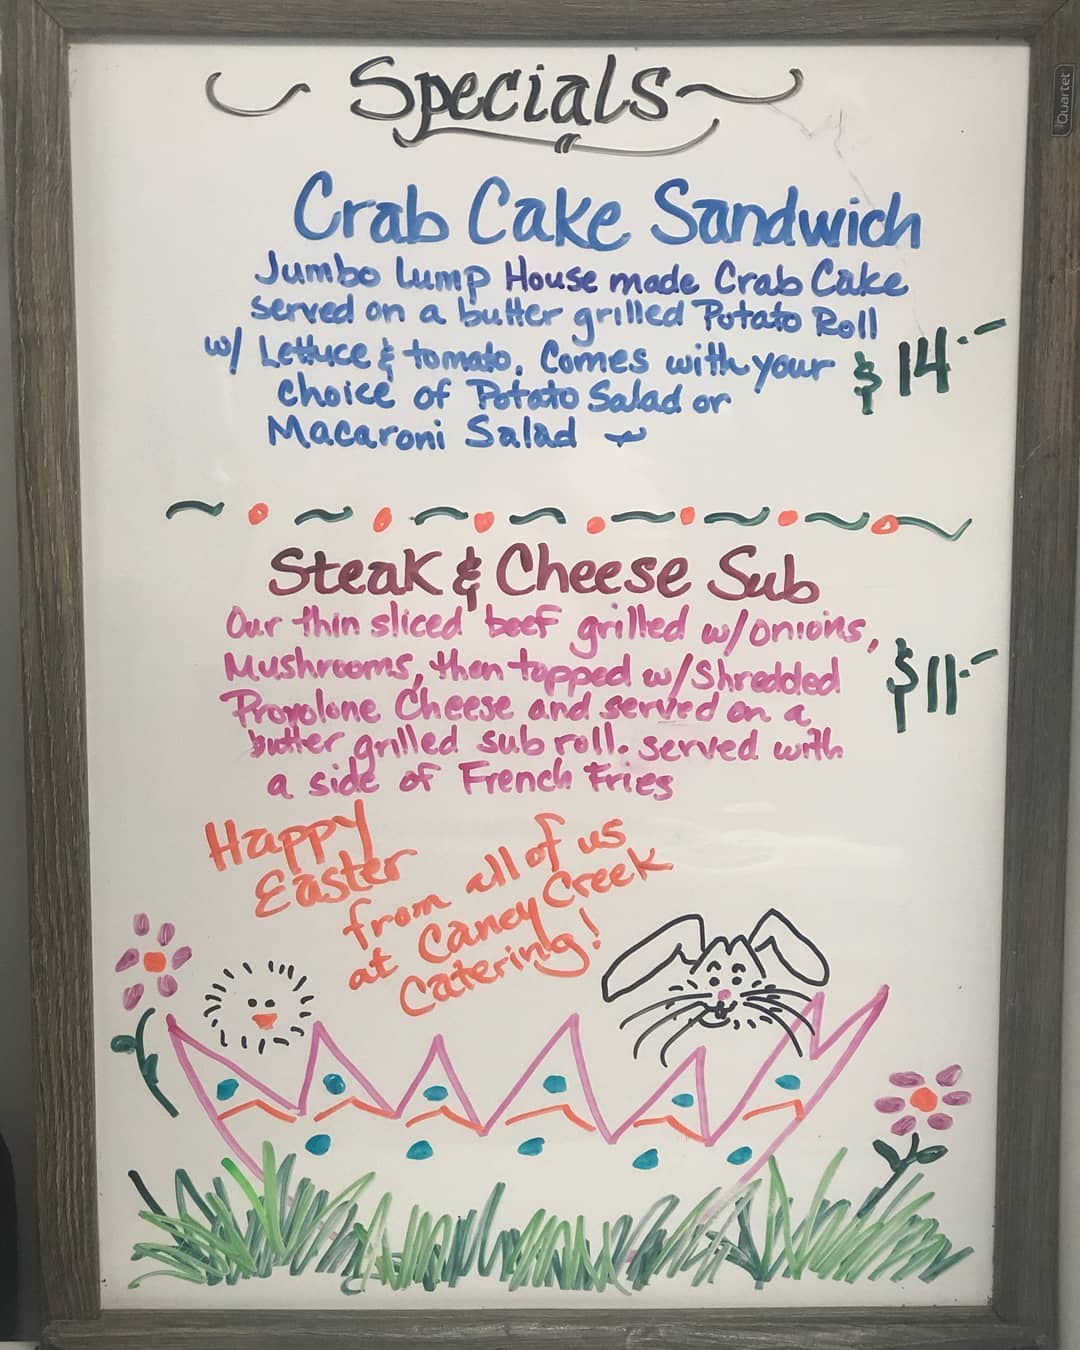 Specials
Quartet
Crab Cake Sandwich
Jumbo Lump House made Crab Cake
served on a butter grilled Potato Roll
w/ Lettuce & tomato. Comes with your
choice of Potato Salad or
Macaroni Salad
$14.-
Steak & Cheese Sub
Our thin sliced beef grilled w/onions,
Mushrooms, then topped w/Shredded
Provolone Cheese and served on a
butter grilled sub roll. served with
a side of French Fries
$11.-
Happy
Easter
from all of us
at Caney Creek
Catering!